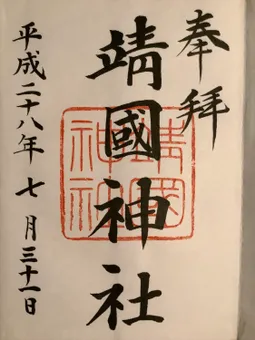 奉拝
靖國神社
平成二十八年 七月三十一日
靖國神社